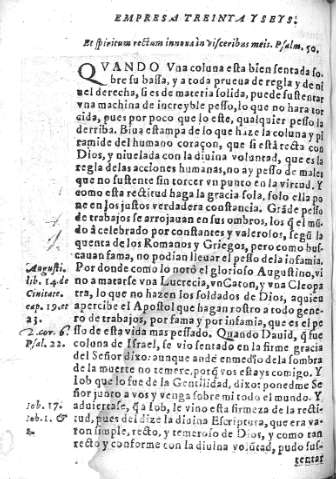 EMPRESA TREINTA Y SEYS.
Et spiritum rectum innoua in visceribus meis. Psalm. 50.
QVANDO Vna coluna esta bien sentada so
bre su bassa, y a toda prueua de regla y de ni
uel derecha, si es de materia solida, puede sustentar
vna machina de increyble pesso, lo que no hara tor
cida, pues por poco que lo este, qualquier pesso la
derriba. Biua estampa de lo que haze la coluna y pi
ramide del humano coraçon, que si està recta con
Dios, y niuelada con la diuina voluntad, que es la
regla de las acciones humanas, no ay pesso de males
que no sustente sin torcer vn punto en la virtud. Y
como esta rectitud haga la gracia sola, solo ella po
ne en los justos verdadera constancia. Grãde pesso
de trabajos se arrojauan en sus ombros, los q̃ el mũ
do à celebrado por constantes y valerosos, segũ la
quenta de los Romanos y Griegos, pero como bus-
cauan fama, no podian lleuar el pesso dela infamia.
Augusti. Por donde como lo notò el glorioso Augustino, vi
lib. 14. de no a matarse vna Lucrecia, vn Caton, y vna Cleopa
Ciuitate. tra, lo que no hazen los soldados de Dios, aquien
cap. 19. et apercibe el Apostol que hagan rostro a todo gene
23. ro de trabajos, por fama y por infamia, que es el pe
2. cor. 6. sso de esta vida mas pessado. Quando Dauid, q̃ fue
Psal. 22. colona de Israel, se vio sentado en la firme gracia
del Señor dixo: aunque ande enmedio dela sombra
de la muerte no temere, porq̃ vos estays comigo. Y
Iob que lo fue de la Gentilidad, dixo: ponedme Se
ñor junto a vos y venga sobre mi todo el mundo. Y
Iob. 17. aduiertase, q̃ a Iob, le vino esta firmeza de la recti-
Iob. 1. & tud, pues del dize la diuina Escriptura, que era va
2. ron simple, recto, y temeroso de Dios, y como tan
recto y conforme con la diuina volũtad, pudo sus
tentar